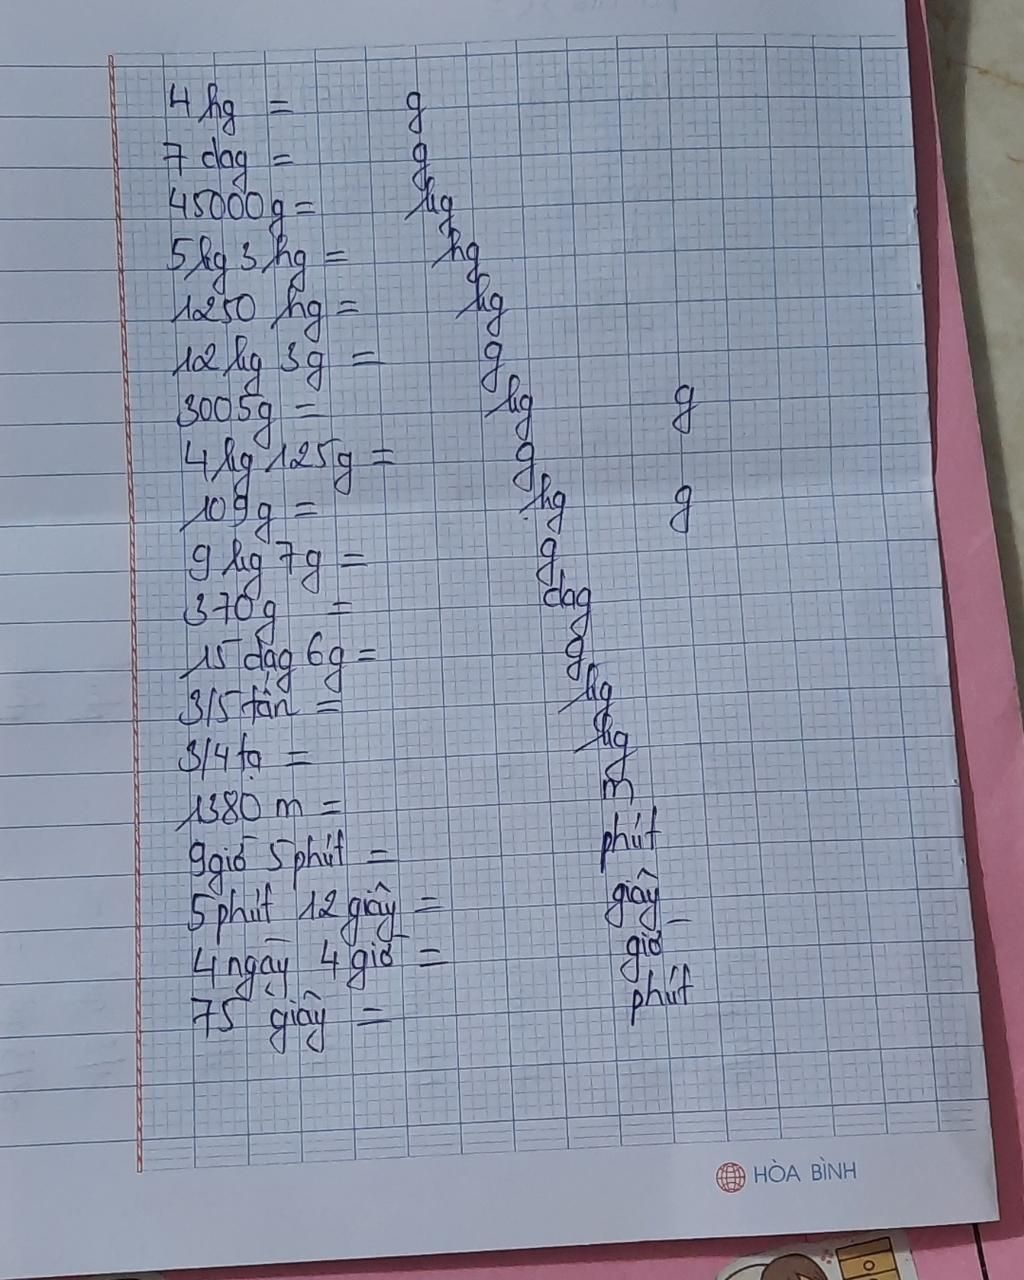 4 hg = g
7 dag = g
45000g = kg
5kg 3hg = hg
1250 hg = kg
12 kg 3g = g
3005g = kg g
4kg 125g = g
109g = hg g
9 kg 7g = g
370g = dag
15 dag 6g = g
3/5 tấn = kg
3/4 tạ = kg
1380 m = m
9giờ 5 phút = phút
5 phút 12 giây = giây
4 ngày 4 giờ = giờ
75 giây = phút
HÒA BÌNH